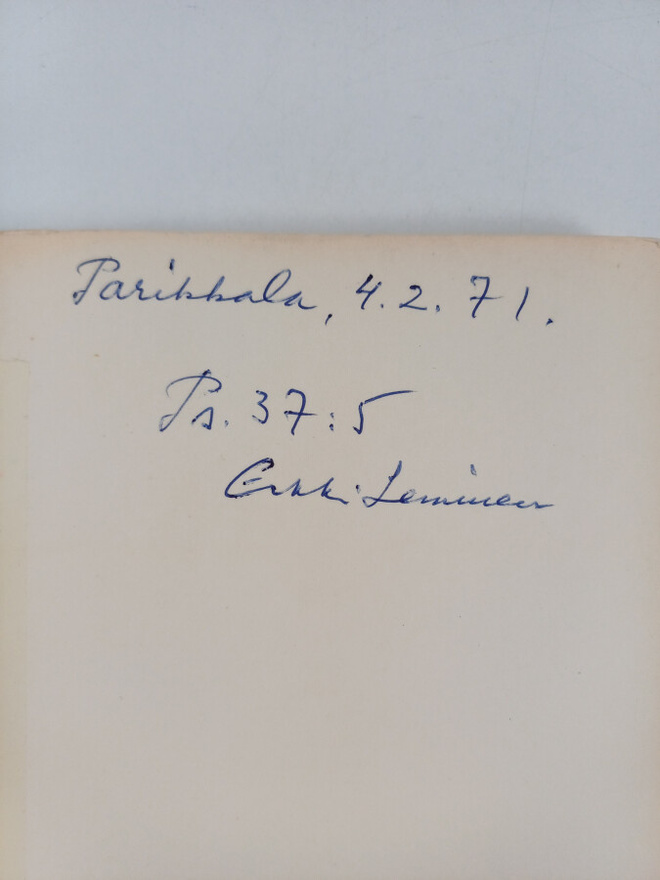 Parikkala, 4.2.71.
Ps. 37:5
Erkki Leminen